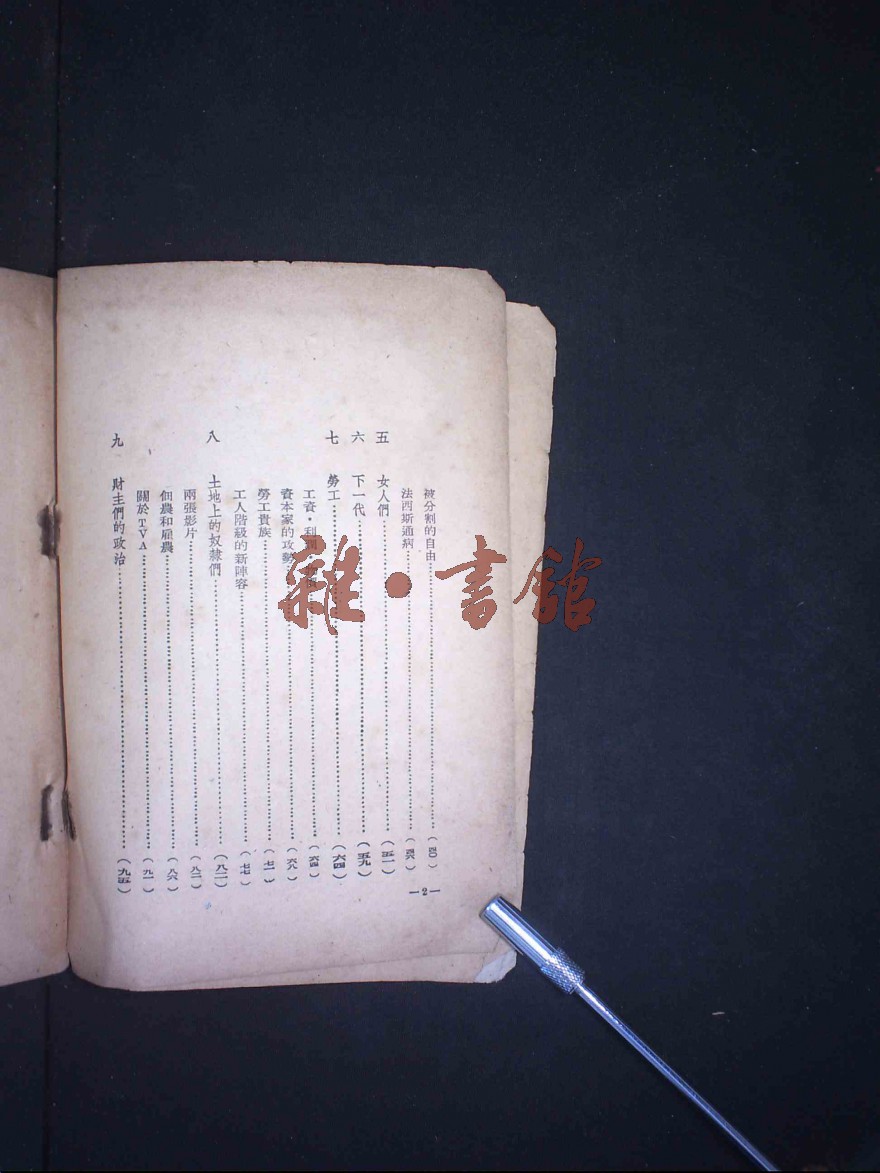 被分割的自由……(四〇)
法西斯通病……(四六)
五 女人們……(五一)
六 下一代……(五九)
七 勞工……(六四)
工資·利潤……(六四)
資本家的攻勢……(六八)
勞工貴族……(七一)
工人階級的新陣容……(七七)
八 土地上的奴隸們……(八二)
兩張影片……(八二)
佃農和雇農……(八六)
關於TVA……(九一)
九 財主們的政治……(九五)
—2—
雜·書館